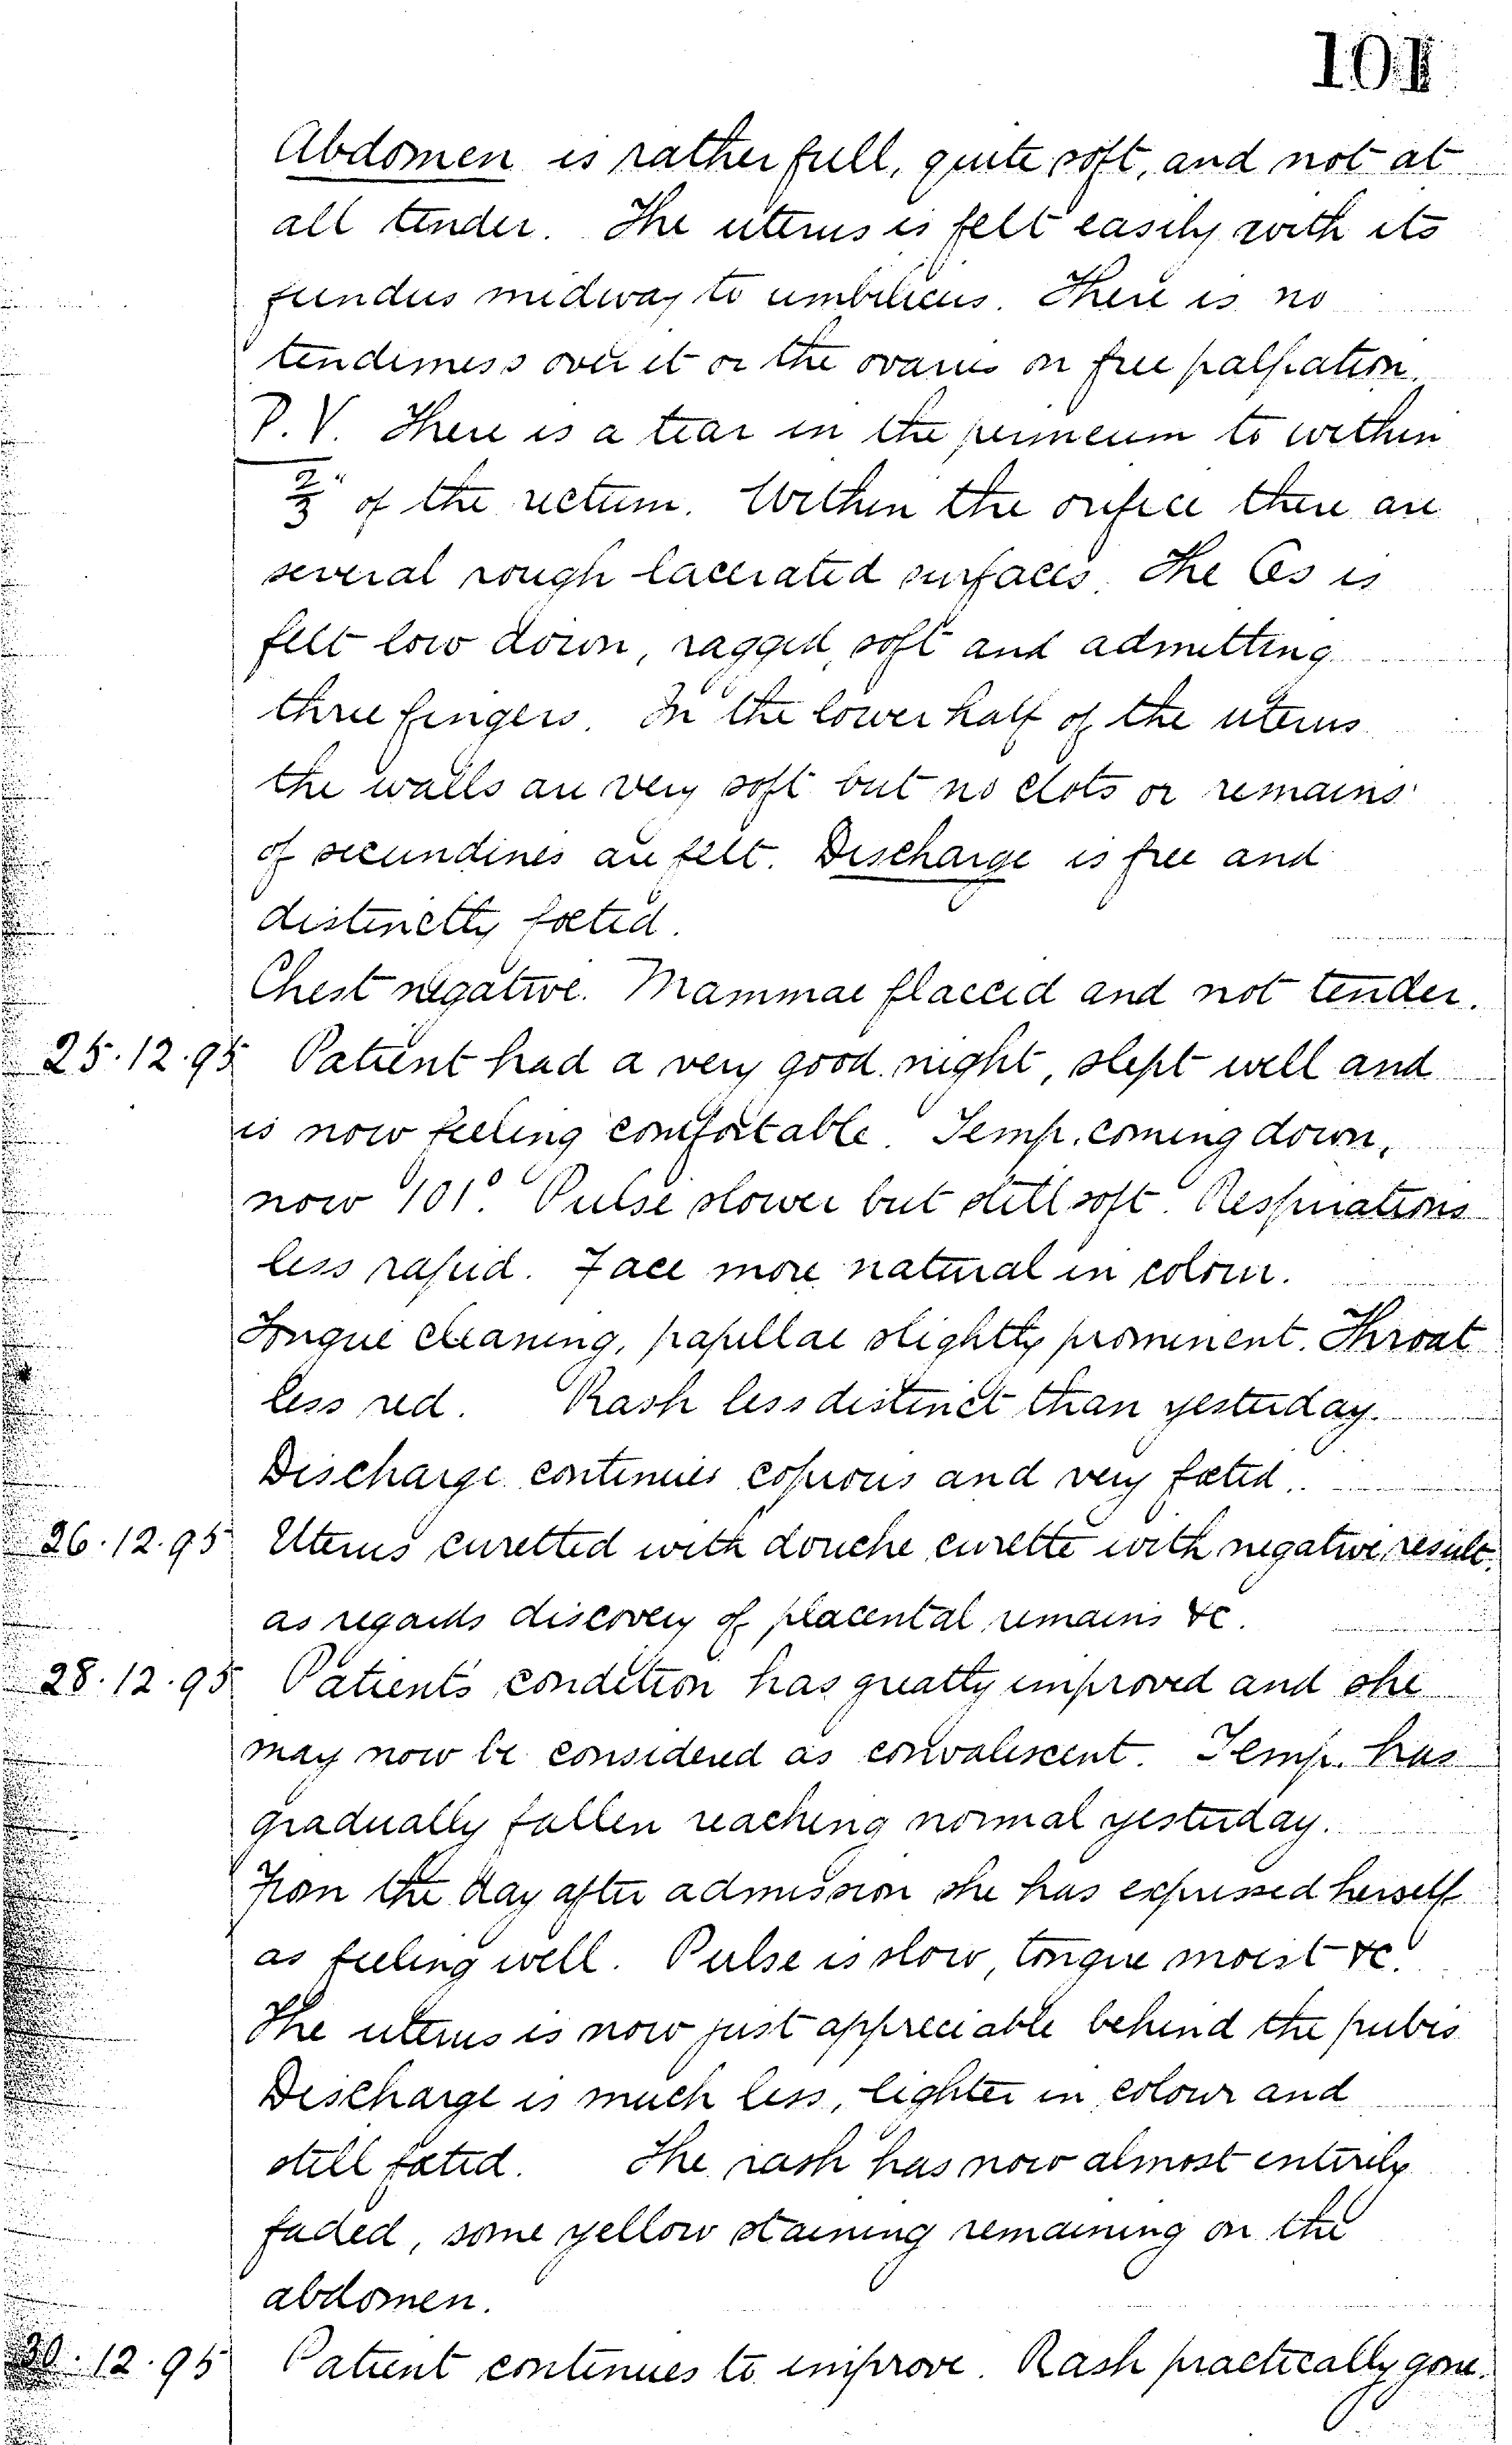 101
Abdomen is rather full, quite soft, and not at
all tender. The uterus is felt easily with its
fundus midway to umbilicus. There is no
tenderness over it or the ovaries on free palpation.
P.V. There is a tear in the perineum to within
2/3" of the rectum. Within the orifice there are
several rough lacerated surfaces. The Os is
felt low down, ragged, soft and admitting
three fingers. In the lower half of the uterus
the walls are very soft but no clots or remains
of secundines are felt. Discharge is free and
distinctly foetid.
Chest negative. Mammae flaccid and not tender.
25.12.95 Patient had a very good night, slept well and
is now feeling comfortable. Temp. coming down,
now 101°. Pulse slower but still soft. Respirations
less rapid. Face more natural in colour.
Tongue cleaning, papillae slightly prominent. Throat
less red. Rash less distinct than yesterday.
Discharge continues copious and very fœtid.
26.12.95 Uterus curetted with douche curette with negative result
as regards discovery of placental remains &c.
28.12.95 Patient's condition has greatly improved and she
may now be considered as convalescent. Temp. has
gradually fallen reaching normal yesterday.
From the day after admission she has expressed herself
as feeling well. Pulse is slow, tongue moist &c.
The uterus is now just appreciable behind the pubis
Discharge is much less, lighter in colour and
still fœtid. The rash has now almost entirely
faded, some yellow staining remaining on the
abdomen.
30.12.95 Patient continues to improve. Rash practically gone.